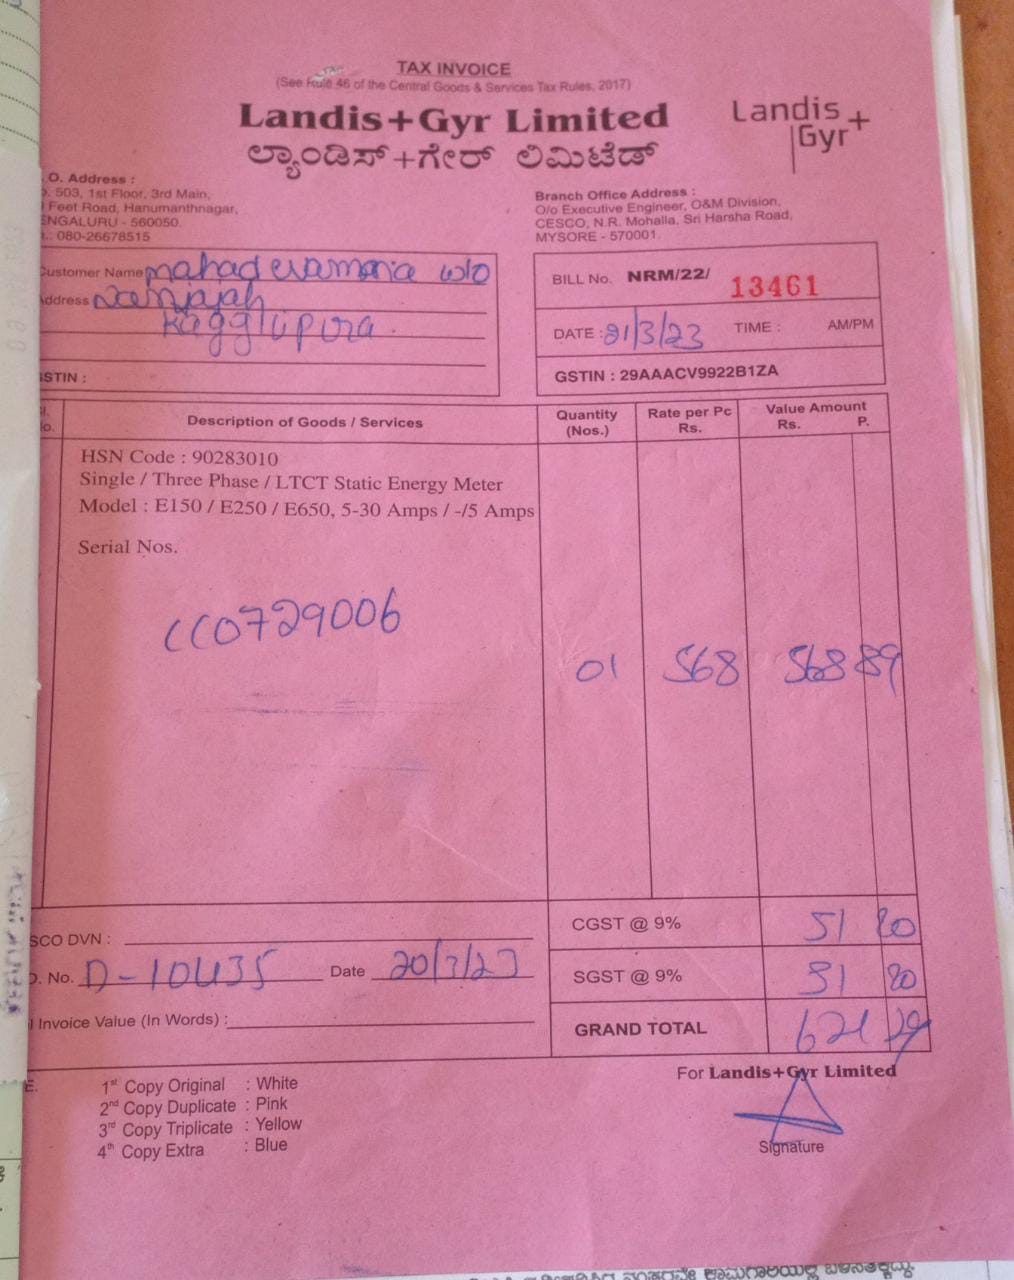 TAX INVOICE
(See Rule 46 of the Central Goods & Services Tax Rules, 2017)
Landis+Gyr Limited
ಲ್ಯಾಂಡಿಸ್+ಗೇರ್ ಲಿಮಿಟೆಡ್
Landis
Gyr+
O. Address :
503, 1st Floor, 3rd Main,
Feet Road, Hanumanthnagar,
ENGALURU - 560050.
.: 080-26678515
Branch Office Address :
O/o Executive Engineer, O&M Division,
CESCO, N.R. Mohalla, Sri Harsha Road,
MYSORE - 570001.
ustomer Name mahadevamma w/o
ddress Nanjajah
Kagglipura.
STIN :
BILL No. NRM/22/ 13461
DATE : 21/3/23 TIME : AM/PM
GSTIN : 29AAACV9922B1ZA
Description of Goods / Services
Quantity
(Nos.)
Rate per Pc
Rs.
Value Amount
Rs. P.
HSN Code : 90283010
Single / Three Phase / LTCT Static Energy Meter
Model : E150 / E250 / E650, 5-30 Amps / -/5 Amps
Serial Nos.
CC0729006
01 568 568 89
SCO DVN :
. No. D-10435 Date 20/3/23
Invoice Value (In Words) :
CGST @ 9% 51 20
SGST @ 9% 51 20
GRAND TOTAL 671 29
E.
1st Copy Original : White
2nd Copy Duplicate : Pink
3rd Copy Triplicate : Yellow
4th Copy Extra : Blue
For Landis+Gyr Limited
Signature